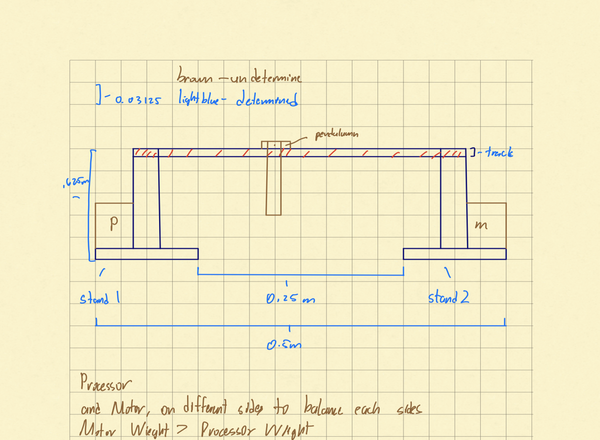 brown - undetermine
]- 0.03125 lightblue - determined
pendulumn
]- track
.625m
P
m
stand 1
0.25 m
stand 2
0.5m
Processor
and Motor, on different sides to balance each sides
Motor Wieght > Processor Wieght